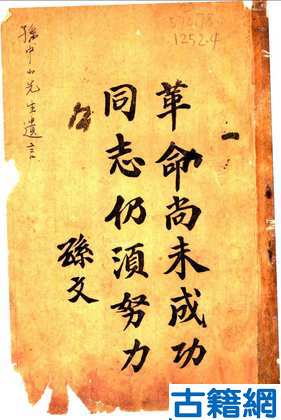 革命尚未成功
同志仍須努力
孫文
孫中山先生遺言
570.78
1252.4
古籍網